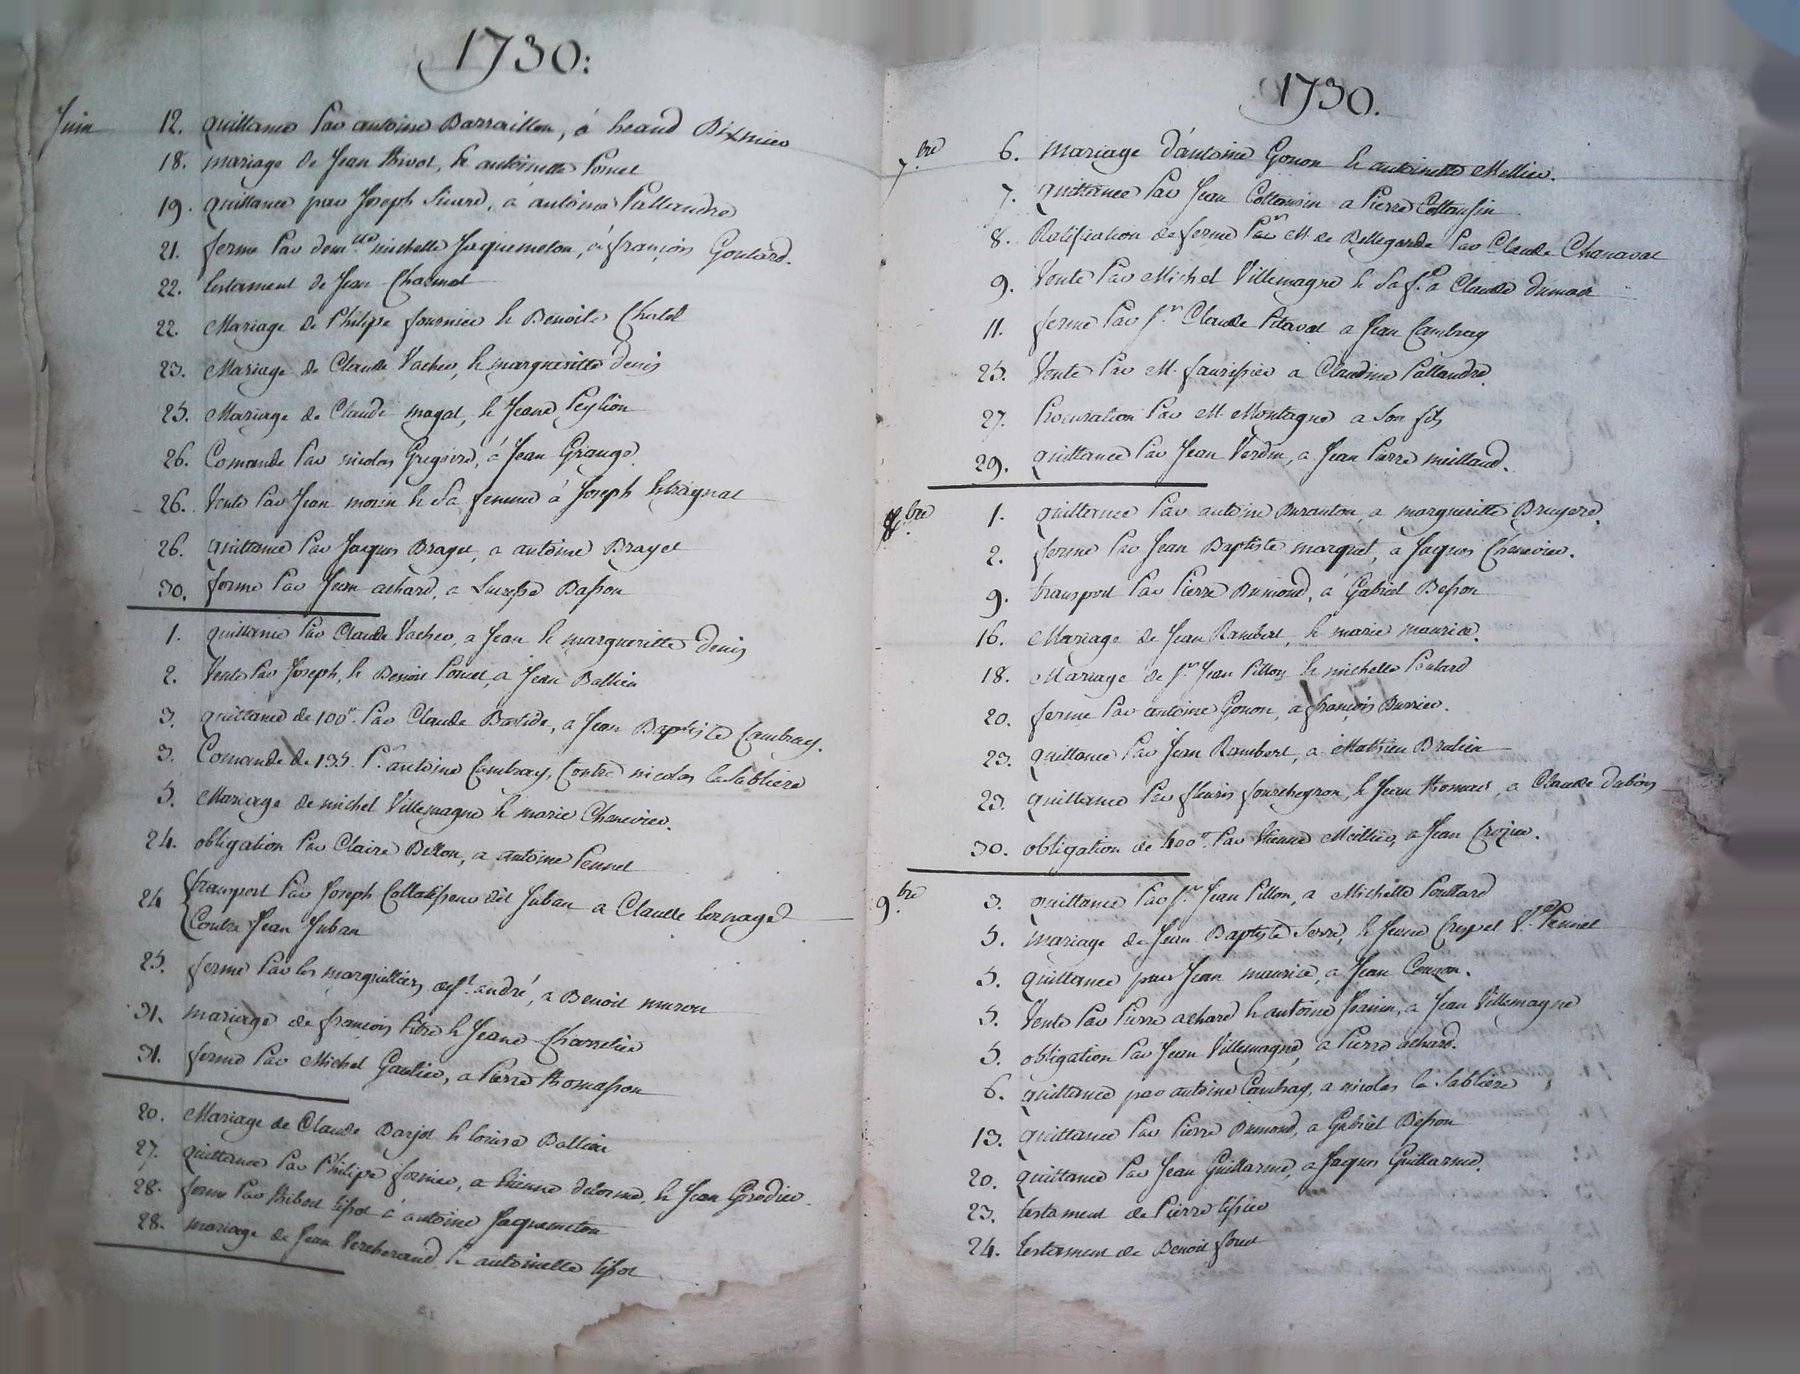 1730:
Juin 12. quittance Par antoine Barraillon, à heand Bixmier
18. mariage de Jean thivot, & antoinette Poncet
19. quittance par Joseph Sicard, à antoine Pallandre
21. ferme Par dem.lle michelle Jaquemeton, à françois Goutard.
22. testament de Jean Charmet
22. Mariage de Philipe fournier & Benoite Cholet
23. Mariage de Claude Vacher, & margueritte denis
25. Mariage de Claude magat, & Jeane Peylion
26. Comande Par nicolas Gregoire, à Jean Grange
26. Vente Par Jean morin & Sa femme à Joseph
26. quittance Par Jacques Brayet, a antoine Brayet
30. ferme Par Jean achard, a Basson
1. quittance Par Claude Vacher, a Jean & margueritte denis
2. Vente Par Joseph, & Benoit Poncet, a Jean Ballien
3. quittance de 100# Par Claude Bastide, a Jean Baptiste Cambray.
3. Comande de 135. Pr. antoine Cambray, Contre nicolas la Sabliere
5. Mariage de michel Villemagne & marie Chenevier.
24. obligation Par Claire Billon, a antoine Pennet
24 transport Par Joseph dit Juban a Claude
Contre Jean Juban
25. ferme Par les marguilliers de st. andré, a Benoit muron
31. mariage de françois Pitre & Jeane Charretier
31. ferme Par Michel Gautier, a Pierre thomasson
20. Mariage de Claude Barjot & loüise Ballien
27. quittance Par Philipe fornier, a Etienne delorme, & Jean Girodier.
28. ferme Par thibaut tissot à antoine Jaquemeton
28. mariage de Jean Vercherand & antoinette tissot
1730.
7.bre 6. Mariage d'antoine Gonon & antoinette Mellier.
7. quittance Par Jean Cottansin a Pierre Cottansin
8. Ratification de ferme Par M. de Bellegarde Par Claude Chanavat
9. Vente Par Michel Villemagne & Sa f.e a Claude dumas
11. ferme Par s.r Claude Pitaval a Jean Cambray
25. Vente Par M. faurissier a Claudine Pallandre.
27. Procuration Par M. Montagne a Son fils
29. quittance Par Jean Verdun, a Jean Pierre meilland.
8.bre 1. quittance Par antoine Duranton, a margueritte Bruyere.
2. ferme Par Jean Baptiste marquet, à Jaques Chenevier.
9. transport Par Pierre Dumond, à Gabriel Besson
16. Mariage de Jean Rambert, & marie maurice.
18. Mariage de s.r Jean Pillon & michelle Poulard
20. ferme Par antoine Gonon, a françois Burrier.
23. quittance Par Jean Rambert, a Mathieu Bralien
23. quittance Par fleuris fourcheyron, & Jean thomas, a Claude dubois
30. obligation de 400# Par Etienne Meillier, a Jean Crozier.
9.bre 3. quittance Par s.r Jean Pillon, a Michelle Poullard
5. mariage de Jean Baptiste Serre, & Jeane Crespet V.e Pennet
5. quittance par Jean maurice, a Jean Connon.
5. Vente Par Pierre achard & antoine franin, a Jean Villemagne
5. obligation Par Jean Villemagne, a Pierre achard.
6. quittance par antoine Cambray, a nicolas la Sabliere
13. quittance Par Pierre Dumond, a Gabriel Besson
20. quittance Par Jean Guillarme, a Jaques Guillarme.
23. testament de Pierre tissier
24. testament de Benoit foret